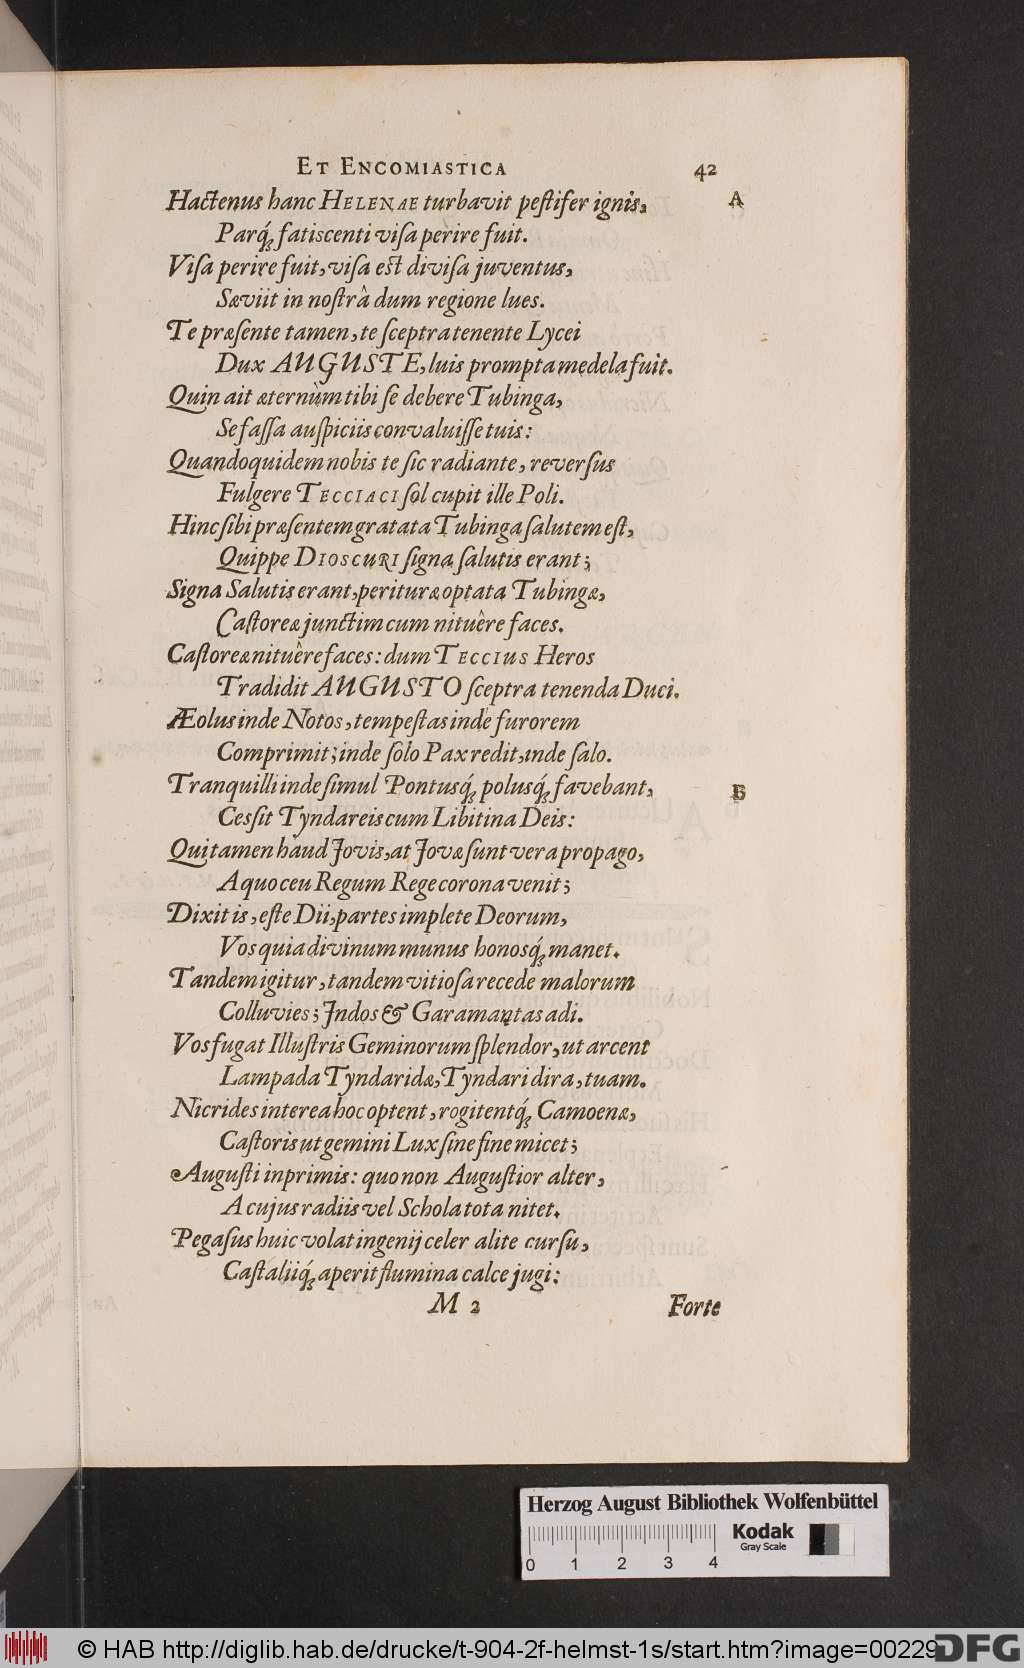 ET ENCOMIASTICA 42
Hactenus hanc HELENAE turbavit pestifer ignis, A
Parq́; fatiscenti visa perire fuit.
Visa perire fuit, visa est divisa juventus,
Sæviit in nostrâ dum regione lues.
Te præsente tamen, te sceptra tenente Lycei
Dux AUGUSTE, luis prompta medela fuit.
Quin ait æternùm tibi se debere Tubinga,
Se fassa auspiciis convaluisse tuis:
Quandoquidem nobis te sic radiante, reversus
Fulgere TECCIACI sol cupit ille Poli.
Hinc sibi præsentem gratata Tubinga salutem est,
Quippe DIOSCURI signa salutis erant;
Signa Salutis erant, perituræ optata Tubingæ,
Castoreæ junctim cum nituêre faces.
Castoreæ nituêre faces: dum TECCIUS Heros
Tradidit AUGUSTO sceptra tenenda Duci.
Æolus inde Notos, tempestas inde furorem
Comprimit; inde solo Pax redit, inde salo.
Tranquilli inde simul Pontusq́; polusq́; favebant, B
Cessit Tyndareis cum Libitina Deis:
Qui tamen haud Jovis, at Jovæ sunt vera propago,
A quo ceu Regum Rege corona venit;
Dixit is, este Dii, partes implete Deorum,
Vos quia divinum munus honosq́; manet.
Tandem igitur, tandem vitiosa recede malorum
Colluvies; Indos & Garamantas adi.
Vos fugat Illustris Geminorum splendor, ut arcent
Lampada Tyndaridæ, Tyndari dira, tuam.
Nicrides interea hoc optent, rogitentq́; Camoenæ,
Castoris ut gemini Lux sine fine micet;
Augusti inprimis: quo non Augustior alter,
A cujus radiis vel Schola tota nitet.
Pegasus huic volat ingenij celer alite cursu,
Castaliiq́; aperit flumina calce jugi:
M 2 Forte
Herzog August Bibliothek Wolfenbüttel
0 1 2 3 4
Kodak
Gray Scale
© HAB http://diglib.hab.de/drucke/t-904-2f-helmst-1s/start.htm?image=00229
DFG